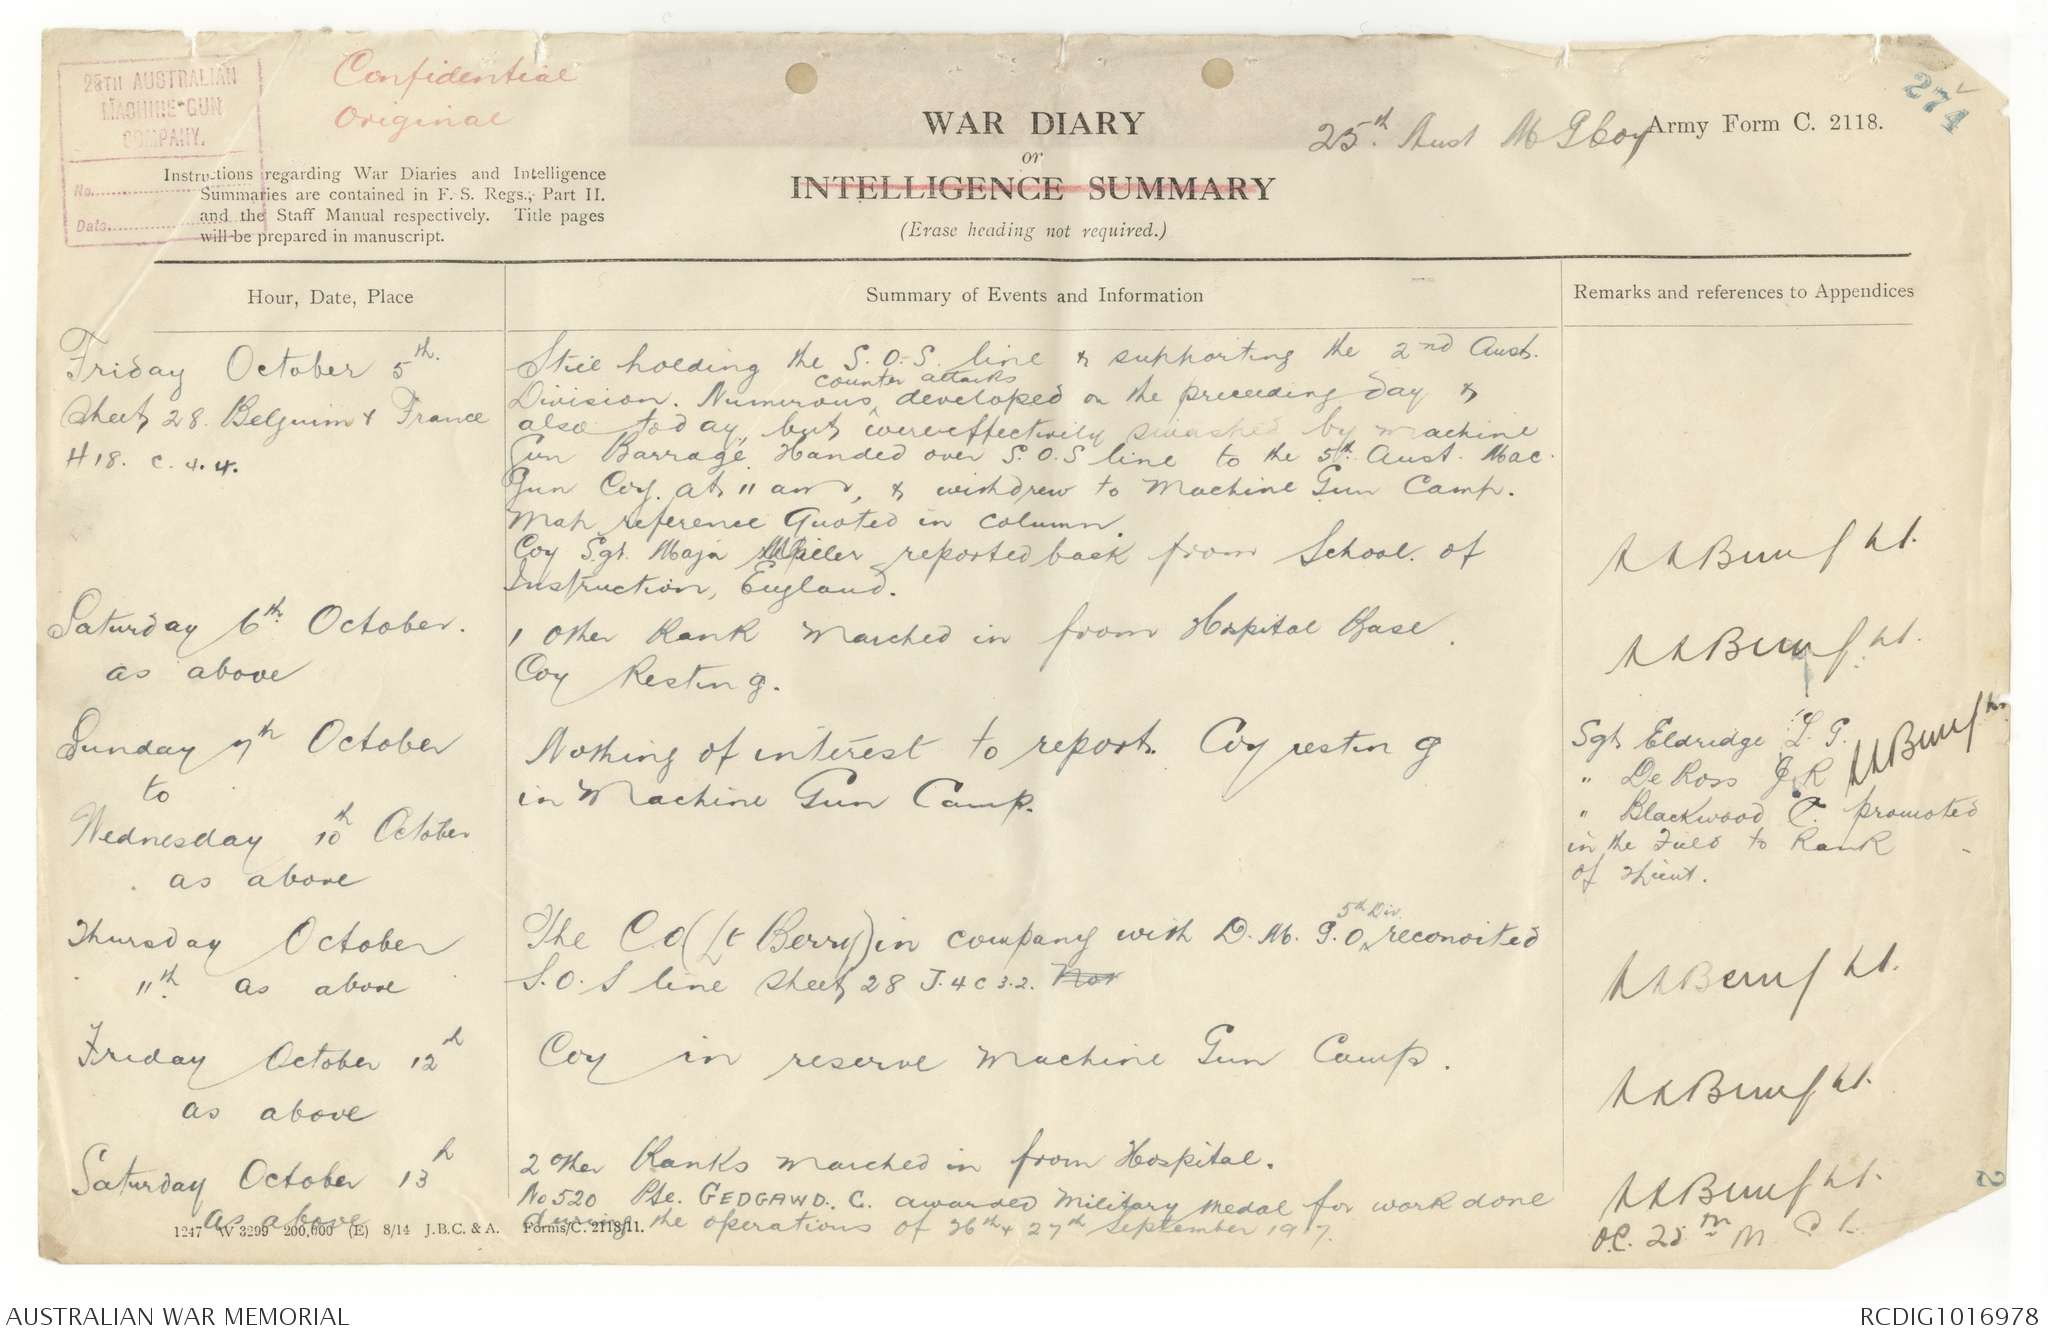 25TH AUSTRALIAN
MACHINE-GUN
COMPANY.
No.
Date
Confidential
Original
Instructions regarding War Diaries and Intelligence
Summaries are contained in F. S. Regs., Part II.
and the Staff Manual respectively. Title pages
will be prepared in manuscript.
WAR DIARY
or
INTELLIGENCE SUMMARY
(Erase heading not required.)
25th. Aust M G Coy
Army Form C. 2118.
274
Hour, Date, Place
Summary of Events and Information
Remarks and references to Appendices
Friday October 5th.
Sheet 28 Belguim & France
H 18. C. 4.4.
Still holding the S.O.S. line & supporting the 2nd Aust.
Division. Numerous counter attacks developed on the preceeding day &
also today, but were effectively smashed by Machine
Gun Barrage. Handed over S.O.S line to the 5th Aust. Mac.
Gun Coy. at 11 am, & withdrew to Machine Gun Camp.
Map reference Quoted in column.
Coy Sgt. Maja Miller reported back from School of
Instruction, England.
Lt.
Saturday 6th October.
as above
1 other Rank marched in from Hospital Base.
Coy Resting.
Lt.
Sunday 7th October
to
Wednesday 10th October
as above
Nothing of interest to report. Coy resting
in Machine Gun Camp.
Sgt Eldridge L. G.
" De Ross J R
" Blackwood C. promoted
in the Field to Rank
of Lieut.
Thursday October
11th. as above
The C O (Lt Berry) in company with D. M. G. O. 5th Div. reconoited
S.O.S line Sheet 28 J.4 C 3.2. Nor
Lt.
Friday October 12th
as above
Coy in reserve Machine Gun Camp.
Lt.
Saturday October 13th
as above
2 other Ranks marched in from Hospital.
No 520 Pte. GEDGAWD. C. awarded Military Medal for work done
during the operations of 26th & 27th September 1917.
Lt.
O.C. 25th M G C
2
1247 W 3299 200,000 (E) 8/14 J.B.C. & A. Forms/C. 2118/11.
AUSTRALIAN WAR MEMORIAL
RCDIG1016978